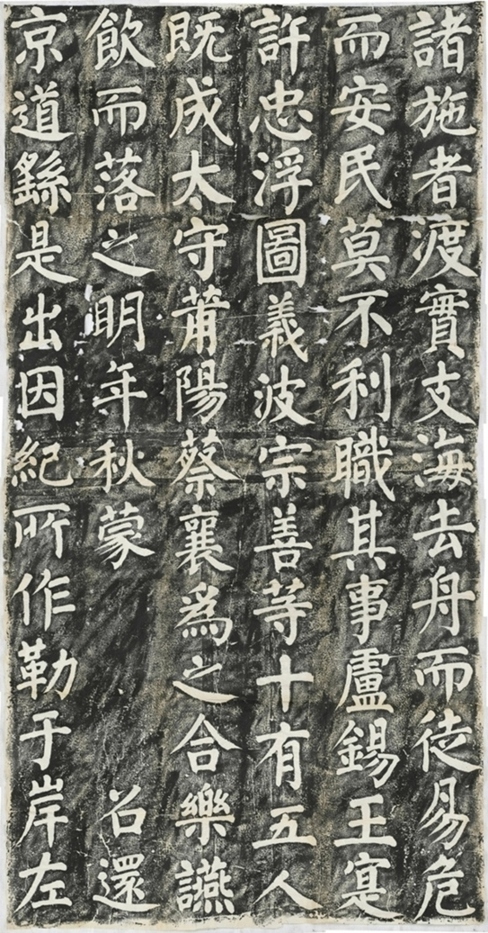 諸施者渡實支海去舟而徒易危
而安民莫不利職其事盧錫王寔
許忠浮圖義波宗善等十有五人
既成太守莆陽蔡襄爲之合樂讌
飲而落之明年秋蒙 召還
京道繇是出因紀所作勒于岸左